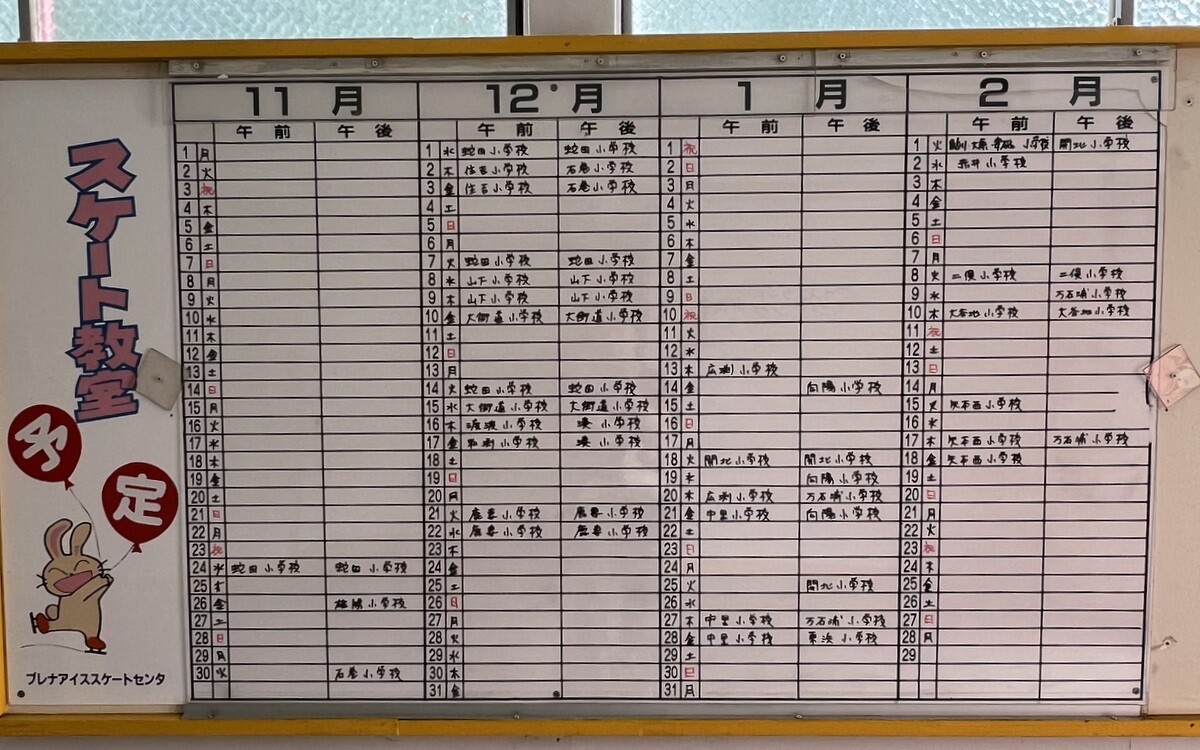 スケート教室
予定
プレナアイススケートセンタ
11月
午前 午後
1 月
2 火
3 祝
4 木
5 金
6 土
7 日
8 月
9 火
10 水
11 木
12 金
13 土
14 日
15 月
16 火
17 水
18 木
19 金
20 土
21 日
22 月
23 祝
24 水 蛇田小学校 蛇田小学校
25 木
26 金 小学校
27 土
28 日
29 月
30 火 石巻小学校
12月
午前 午後
1 水 蛇田小学校 蛇田小学校
2 木 住吉小学校 石巻小学校
3 金 住吉小学校 石巻小学校
4 土
5 日
6 月
7 火 蛇田小学校 蛇田小学校
8 水 山下小学校 山下小学校
9 木 山下小学校 山下小学校
10 金 大街道小学校 大街道小学校
11 土
12 日
13 月
14 火 蛇田小学校 蛇田小学校
15 水 大街道小学校 大街道小学校
16 木 渡波小学校 湊小学校
17 金 小学校 湊小学校
18 土
19 日
20 月
21 火 鹿妻小学校 鹿妻小学校
22 水 鹿妻小学校 鹿妻小学校
23 木
24 金
25 土
26 日
27 月
28 火
29 水
30 木
31 金
1月
午前 午後
1 祝
2 日
3 月
4 火
5 水
6 木
7 金
8 土
9 日
10 祝
11 火
12 水
13 木 広渕小学校
14 金 向陽小学校
15 土
16 日
17 月
18 火 開北小学校 開北小学校
19 水 向陽小学校
20 木 広渕小学校 万石浦小学校
21 金 中里小学校 向陽小学校
22 土
23 日
24 月
25 火 開北小学校
26 水
27 木 中里小学校 万石浦小学校
28 金 中里小学校 東浜小学校
29 土
30 日
31 月
2月
午前 午後
1 火 小学校 開北小学校
2 水 赤井小学校
3 木
4 金
5 土
6 日
7 月
8 火 二俣小学校 二俣小学校
9 水 万石浦小学校
10 木 大谷地小学校 大谷地小学校
11 祝
12 土
13 日
14 月
15 火 矢本西小学校
16 水
17 木 矢本西小学校 万石浦小学校
18 金 矢本西小学校
19 土
20 日
21 月
22 火
23 祝
24 木
25 金
26 土
27 日
28 月
29